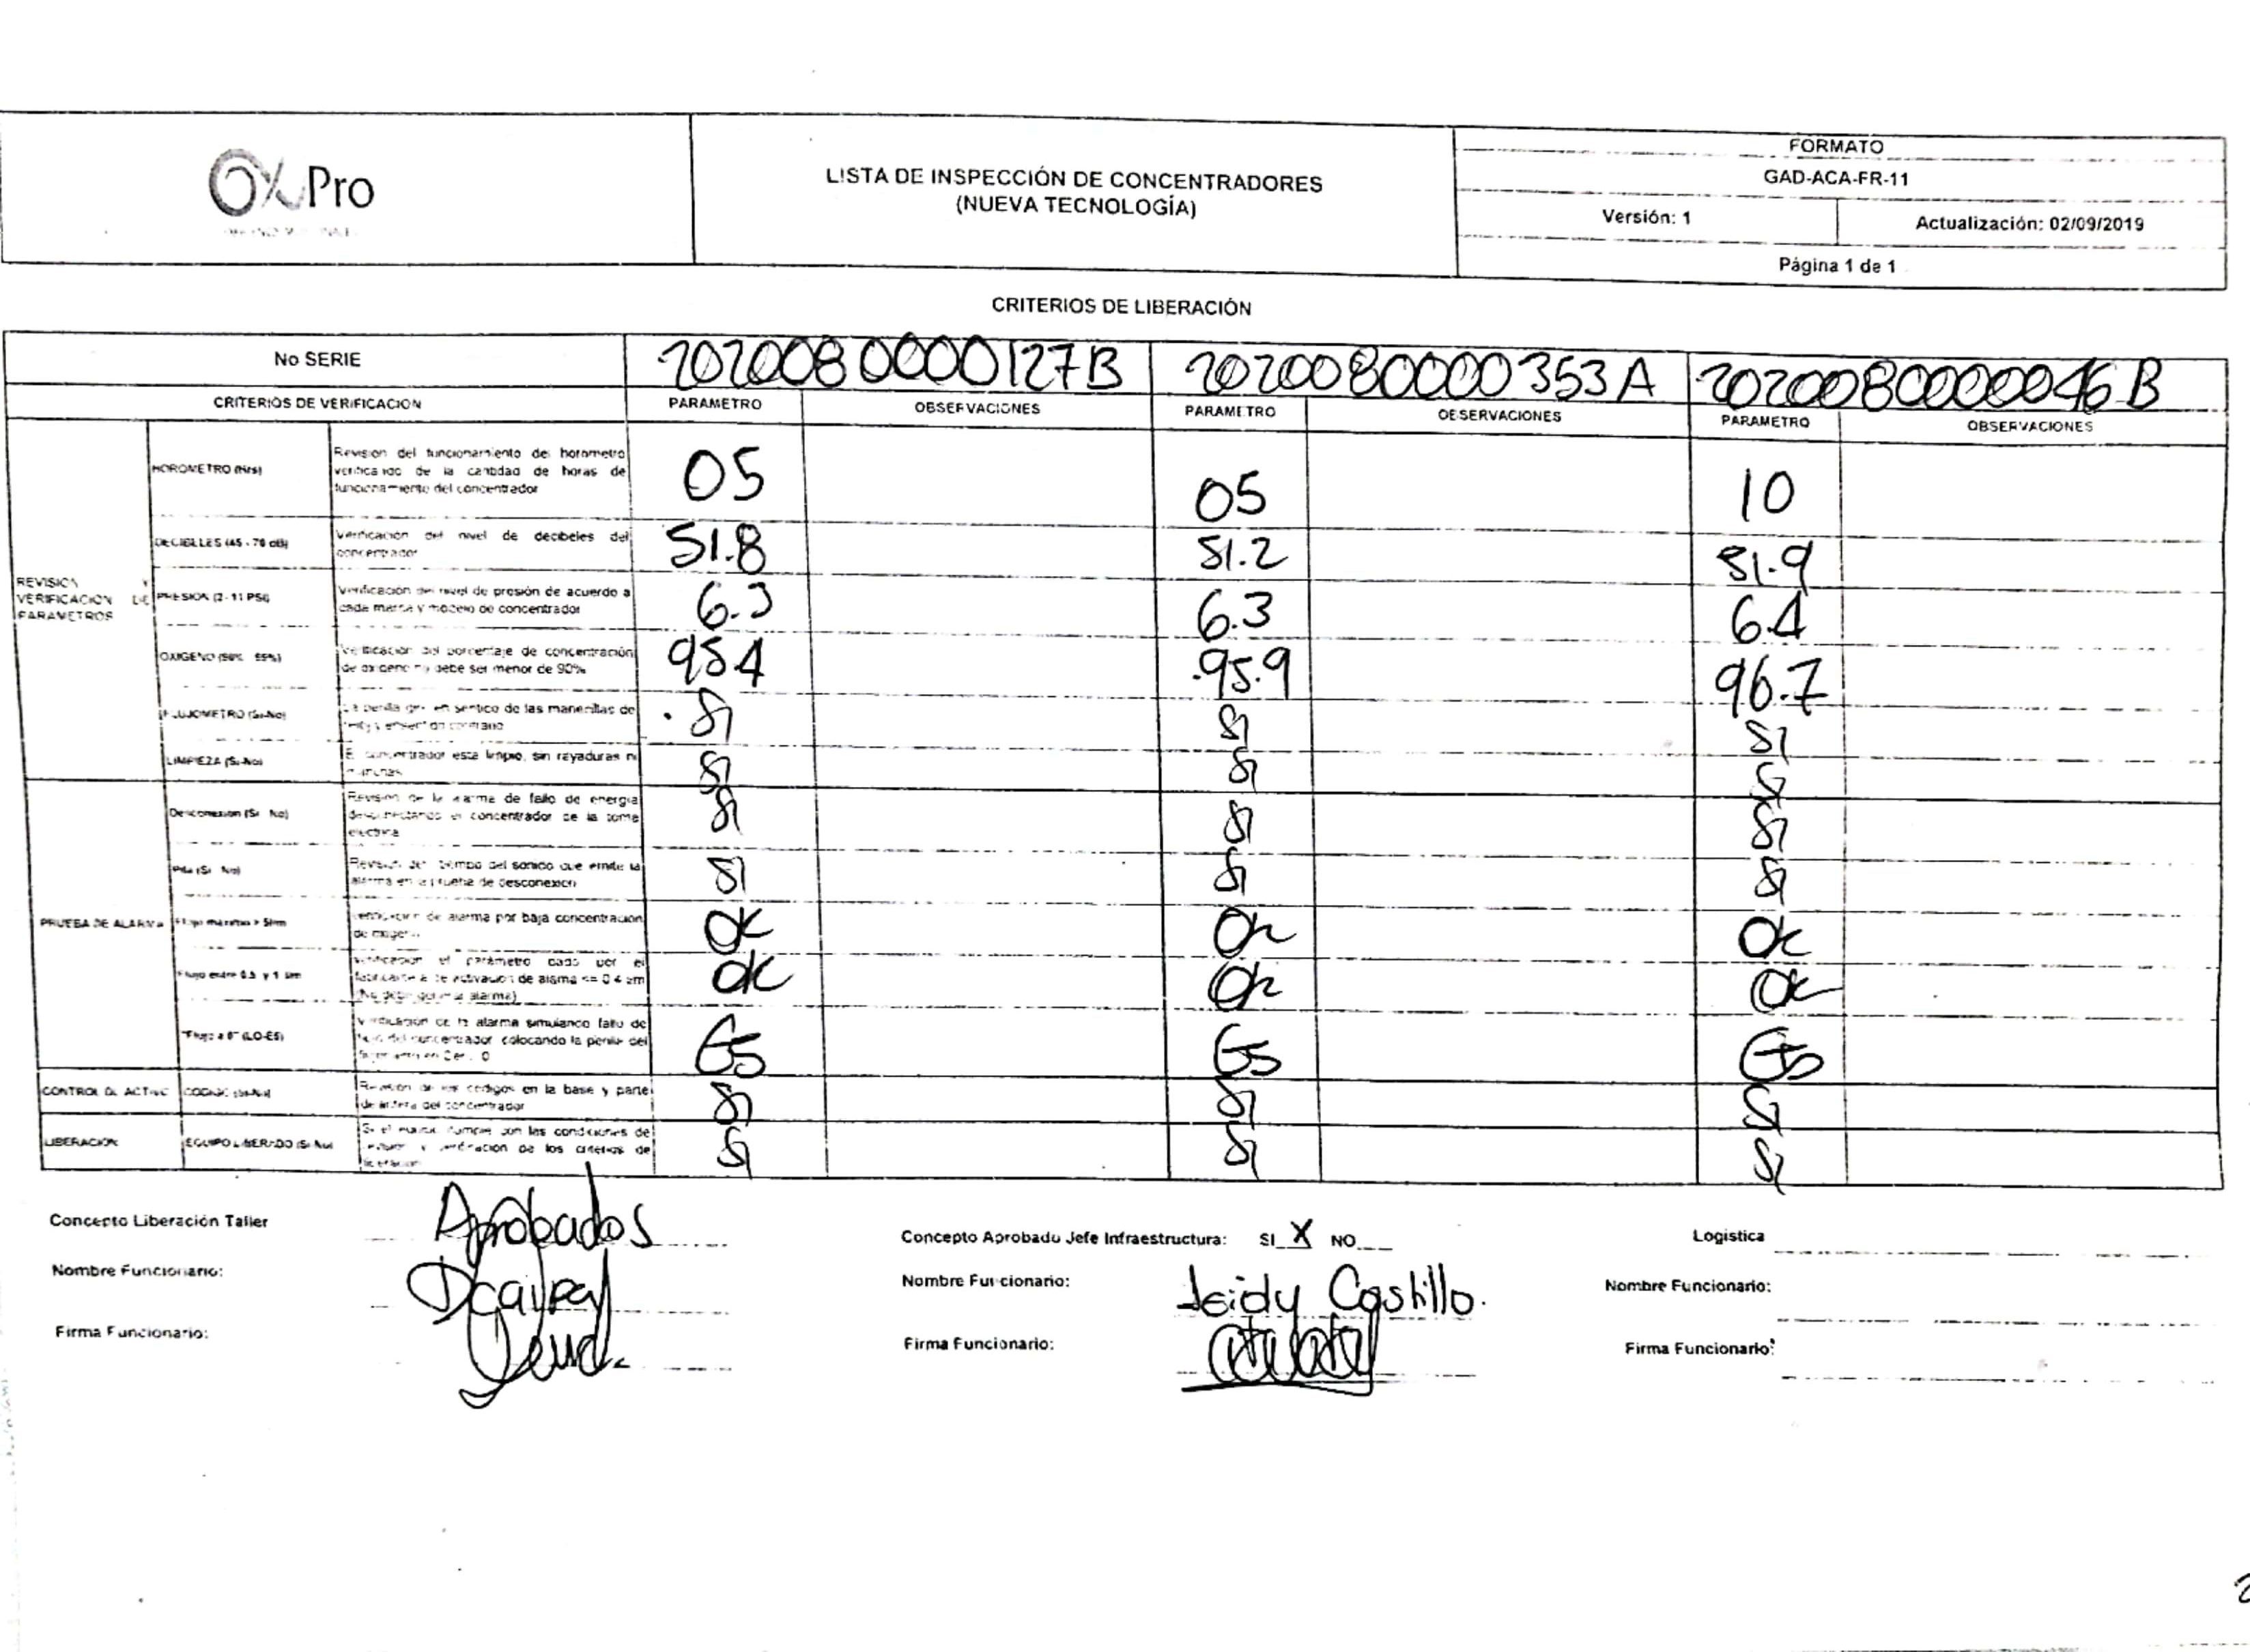 OxPro
LISTA DE INSPECCIÓN DE CONCENTRADORES
(NUEVA TECNOLOGÍA)
FORMATO
GAD-ACA-FR-11
Versión: 1
Actualización: 02/09/2019
Página 1 de 1
CRITERIOS DE LIBERACIÓN
No SERIE 2020080000127B 2020080000353A 2020080000046B
CRITERIOS DE VERIFICACION PARAMETRO OBSERVACIONES PARAMETRO OBSERVACIONES PARAMETRO OBSERVACIONES
REVISION Y
VERIFICACION DE
PARAMETROS
HOROMETRO (Hrs)
Revision del funcionamiento del horometro
verificando de la cantidad de horas de
funcionamiento del concentrador
05 05 10
DECIBELES (45 - 70 dB)
Verificación del nivel de decibeles del
concentrador
51.8 51.2 51.9
PRESION (2-11 PSI)
Verificación del nivel de presión de acuerdo a
cada marca y modelo de concentrador
6.3 6.3 6.4
OXIGENO (90% 99%)
Verificación del porcentaje de concentración
de oxigeno no debe ser menor de 90%
95.4 95.9 96.7
FLUJOMETRO (Si-No)
La perilla gira en sentido de las manecillas de
SI SI SI
LIMPIEZA (Si-No)
El concentrador esta limpio, sin rayaduras ni
manchas
SI SI SI
PRUEBA DE ALARMA
Desconexion (Si No)
Revision de la alarma de fallo de energia
desconectando el concentrador de la toma
electrica
SI SI SI
Pita (Si No)
Revision del tiempo del sonido que emite la
alarma en la prueba de desconexion
SI SI SI
Flujo maximo > 5lrm
Verificacion de alarma por baja concentracion
de oxigeno
OK OK OK
Flujo entre 0.5 y 1 lrm
Verificacion el parámetro dado por el
fabricante de activacion de alarma <= 0.4
OK OK OK
"Flujo a 0" (LO-E5)
Verificación de la alarma simulando fallo de
flujo del concentrador colocando la perilla del
E5 E5 E5
CONTROL DE ACTIVO
CODIGO (Si-No)
Revision de los codigos en la base y parte
delantera del concentrador
SI SI SI
LIBERACION
EQUIPO LIBERADO (Si No)
Si el equipo cumple con las condiciones de
y verificacion de los criterios de
liberacion
SI SI SI
Concepto Liberación Taller Aprobados
Concepto Aprobado Jefe Infraestructura: SI X NO
Logistica
Nombre Funcionario:
Nombre Funcionario: Leidy Castillo.
Nombre Funcionario:
Firma Funcionario:
Firma Funcionario:
Firma Funcionario: